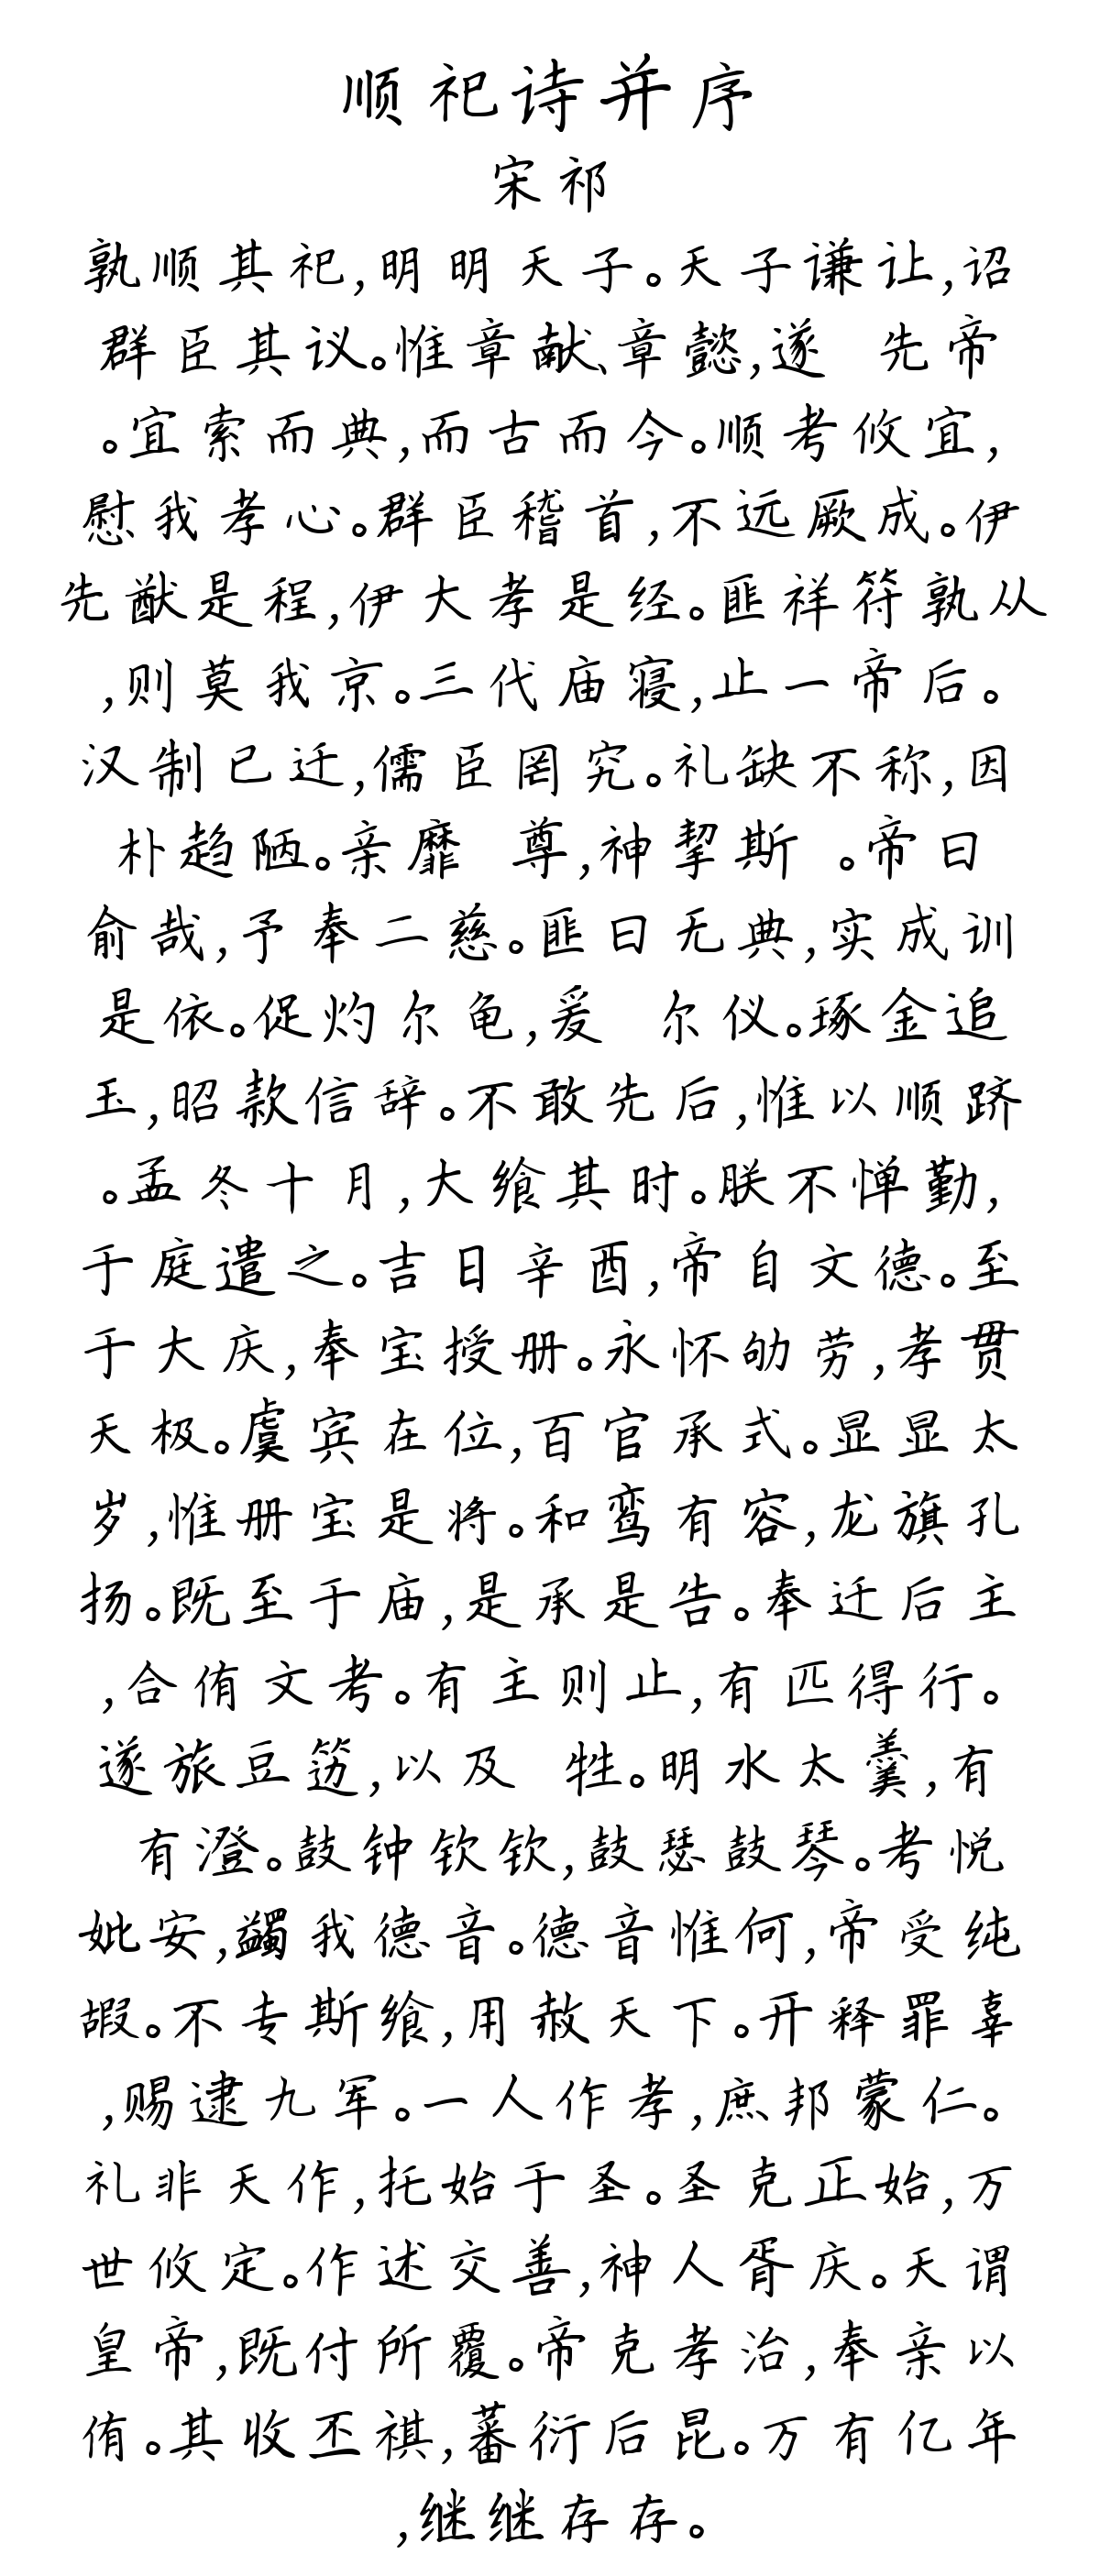 顺祀诗并序
宋祁
孰顺其祀,明明天子。天子谦让,诏
群臣其议。惟章献、章懿,遂 先帝
。宜索而典,而古而今。顺考攸宜,
慰我孝心。群臣稽首,不远厥成。伊
先猷是程,伊大孝是经。匪祥符孰从
,则莫我京。三代庙寝,止一帝后。
汉制已迁,儒臣罔究。礼缺不称,因
朴趋陋。亲靡 尊,神挈斯 。帝曰
俞哉,予奉二慈。匪曰无典,实成训
是依。促灼尔龟,爰 尔仪。琢金追
玉,昭款信辞。不敢先后,惟以顺跻
。孟冬十月,大飨其时。朕不惮勤,
于庭遣之。吉日辛酉,帝自文德。至
于大庆,奉宝授册。永怀劬劳,孝贯
天极。虞宾在位,百官承式。显显太
岁,惟册宝是将。和鸾有容,龙旗孔
扬。既至于庙,是承是告。奉迁后主
,合侑文考。有主则止,有匹得行。
遂旅豆笾,以及 牲。明水太羹,有
有澄。鼓钟钦钦,鼓瑟鼓琴。考悦
妣安,蠲我德音。德音惟何,帝受纯
嘏。不专斯飨,用赦天下。开释罪辜
,赐逮九军。一人作孝,庶邦蒙仁。
礼非天作,托始于圣。圣克正始,万
世攸定。作述交善,神人胥庆。天谓
皇帝,既付所覆。帝克孝治,奉亲以
侑。其收丕祺,蕃衍后昆。万有亿年
,继继存存。